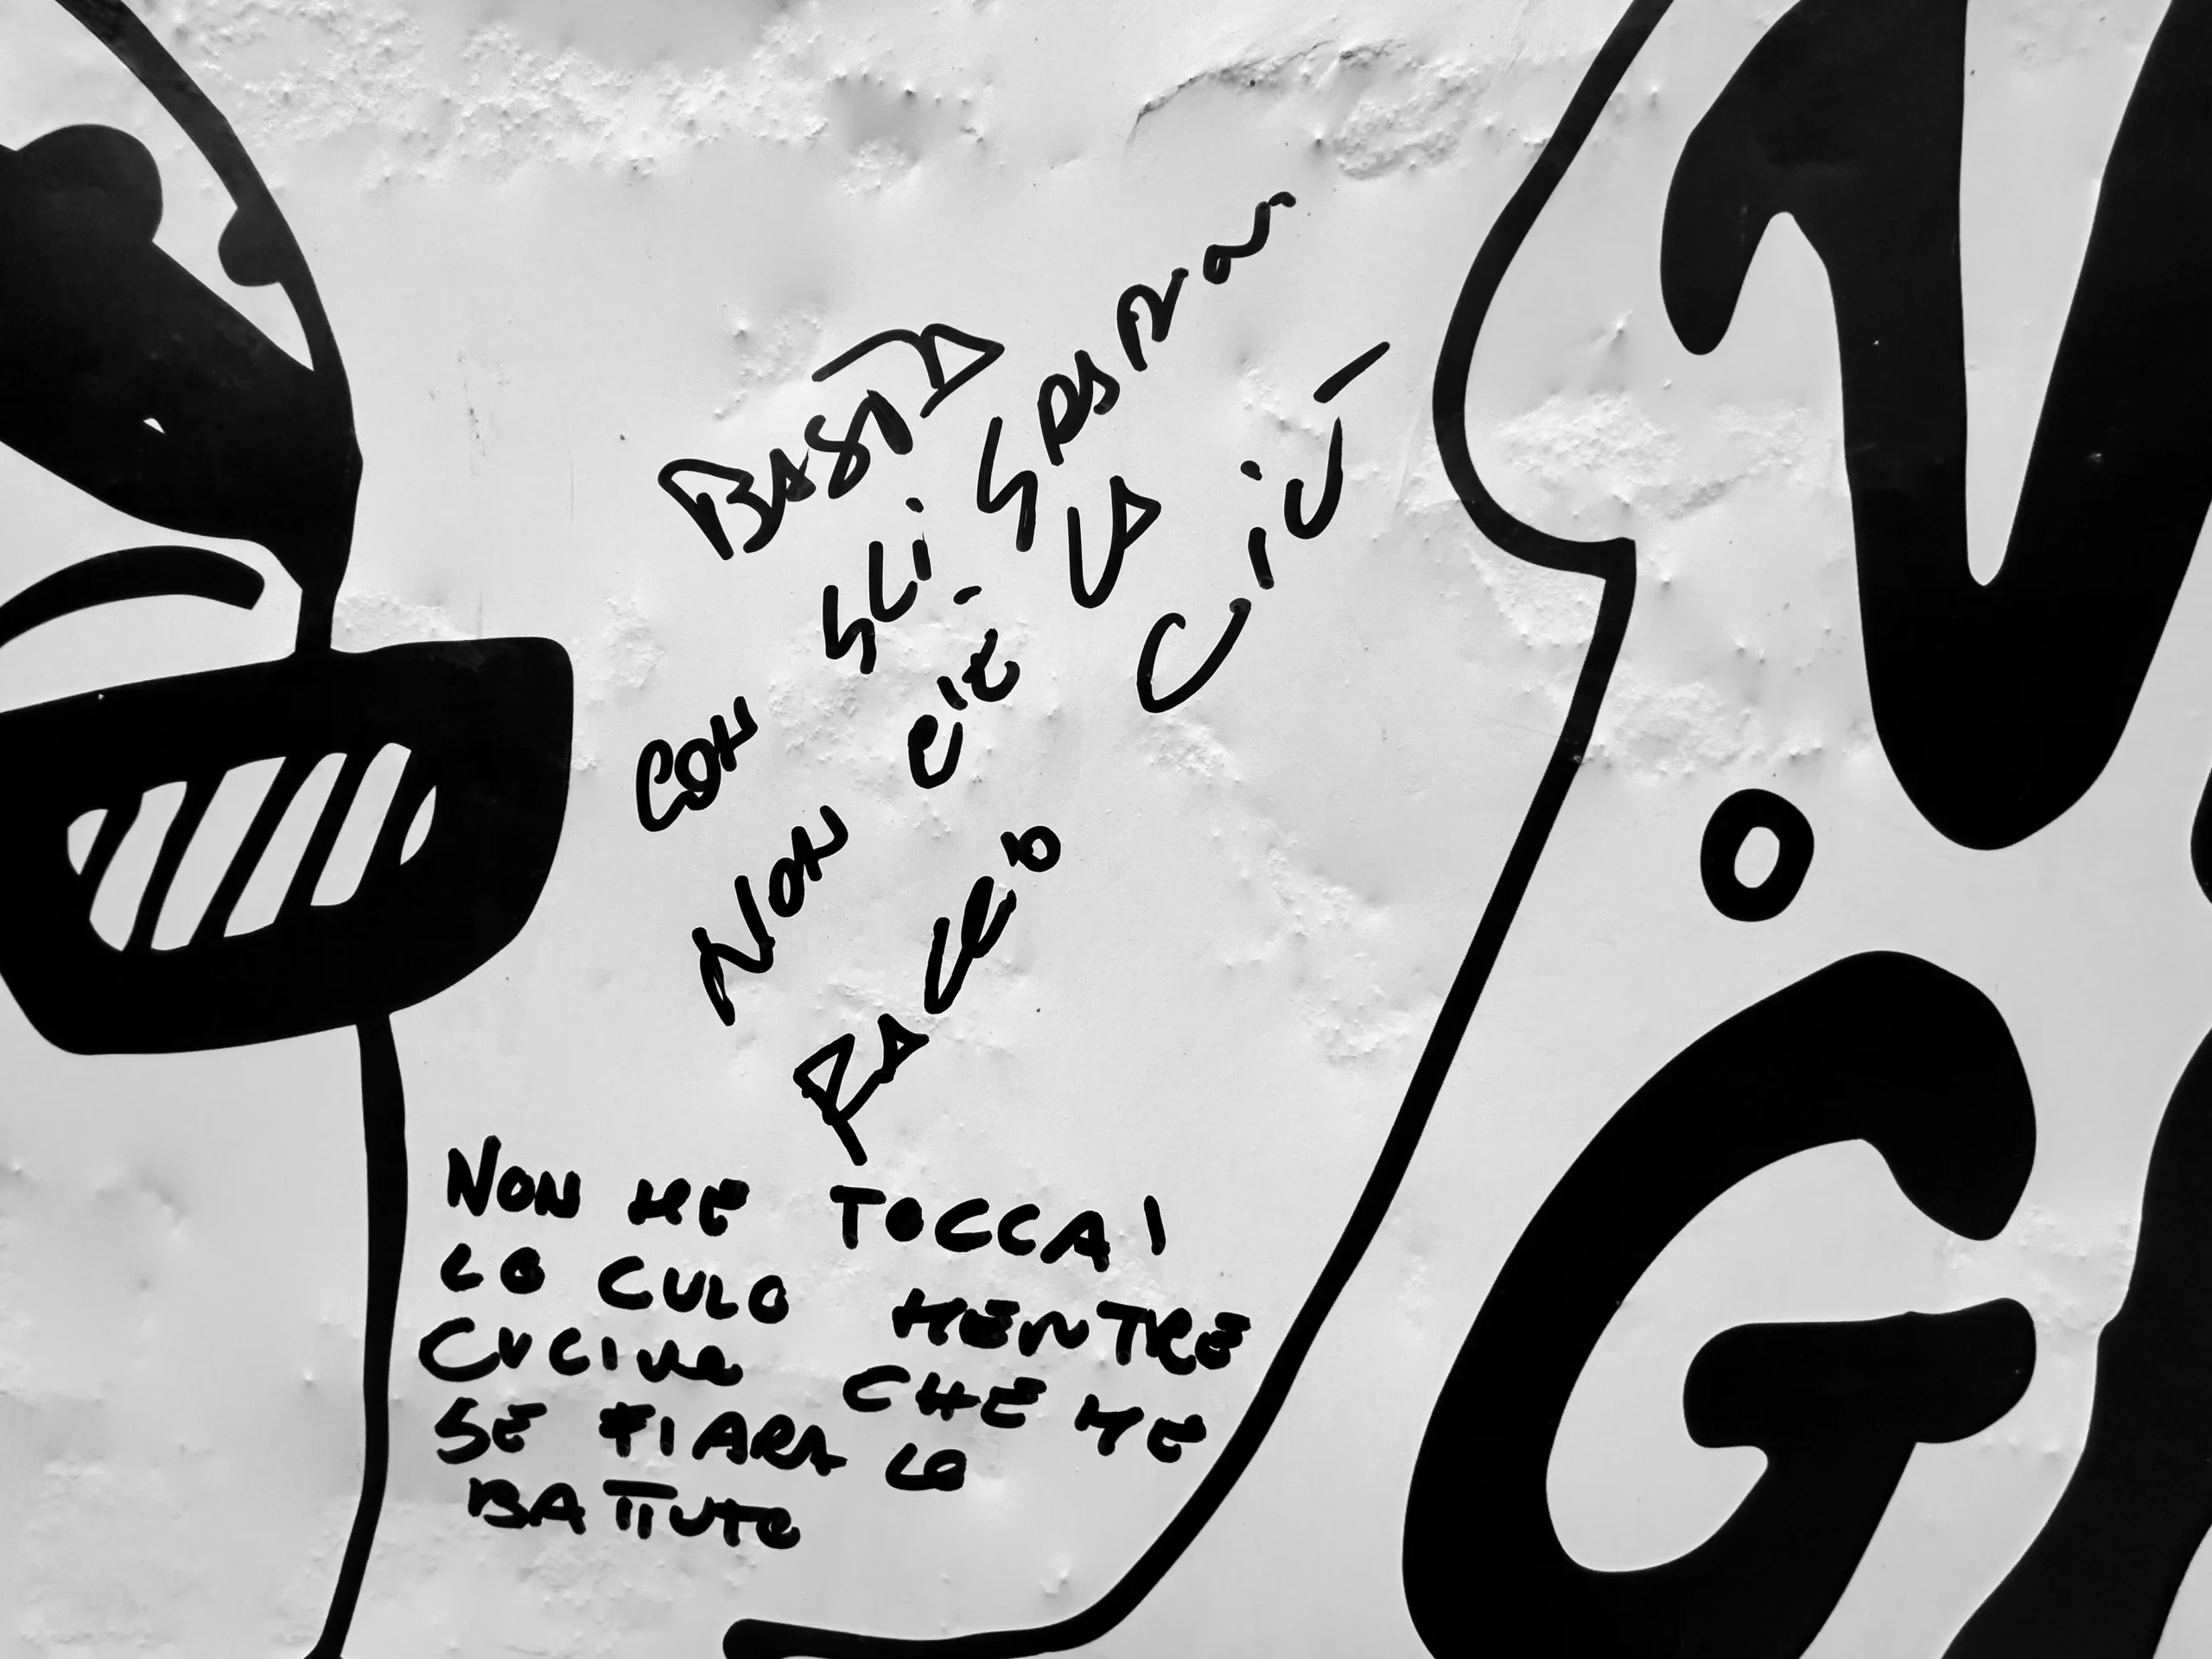 BASTA
CON GLI
NON LA
NON ME TOCCA'
LO CULO MENTRE
CUCINO CHE ME
SE FIARA LO
BATTUTO